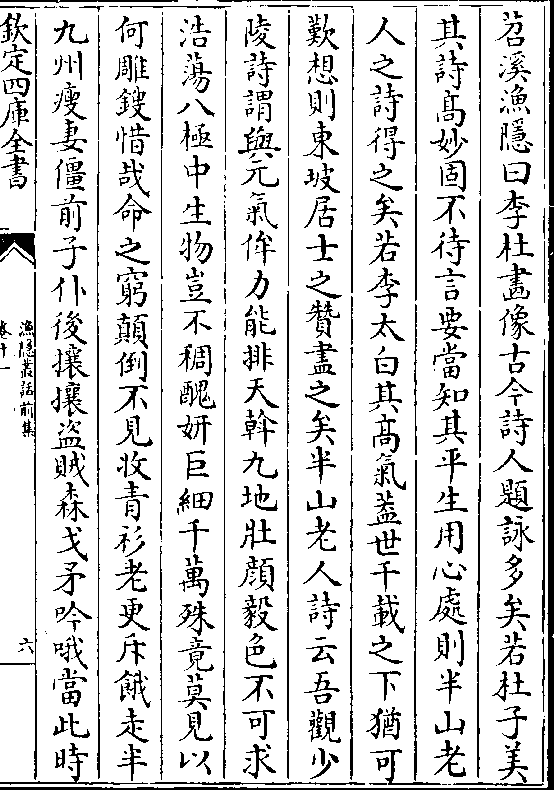 苕溪漁隱曰李杜畫像古今詩人題詠多矣若杜子美
其詩髙妙固不待言要當知其平生用心處則半山老
人之詩得之矣若李太白其髙氣葢世千載之下猶可
歎想則東坡居士之贊盡之矣半山老人詩云吾觀少
陵詩謂與元氣侔力能排天斡九地壯顔毅色不可求
浩蕩八極中生物豈不稠醜妍巨細千萬殊竟莫見以
何雕鎪惜哉命之窮顛倒不見收青衫老更斥餓走半
九州瘦妻僵前子仆後攘攘盗賊森戈矛吟哦當此時
欽定四庫全書
漁隠叢話前集
卷十一
六